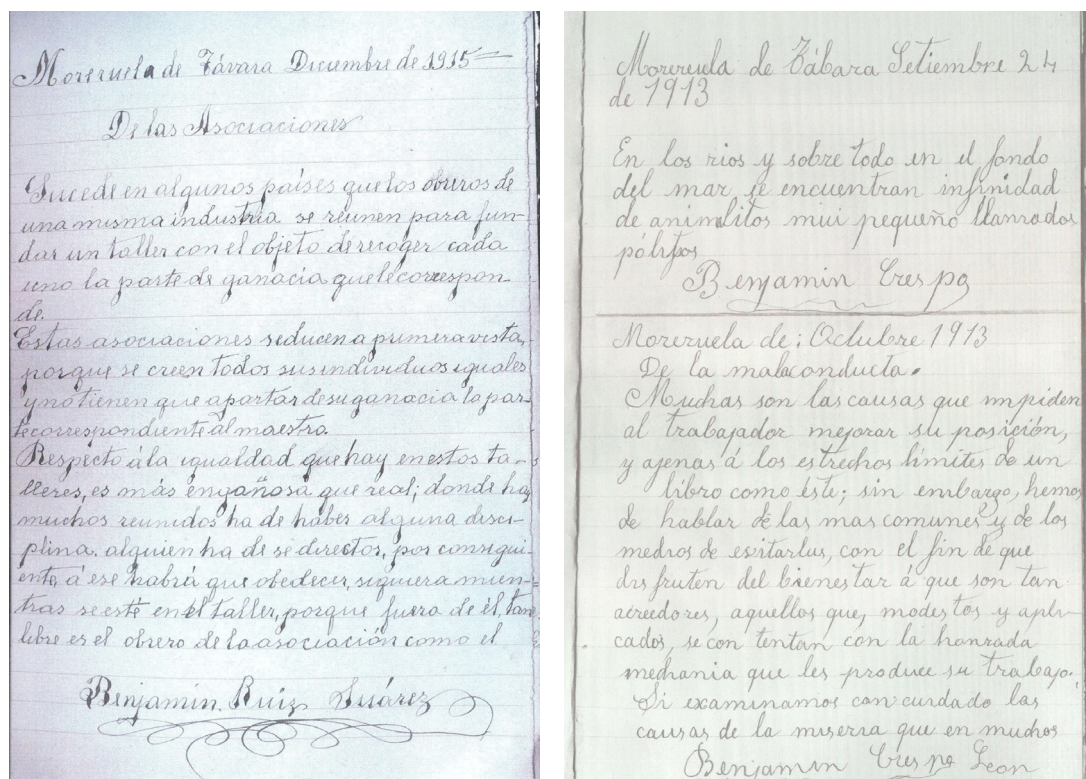 Moreruela de Távara Diciembre de 1915
De las Asociaciones
Sucede en algunos países que los obreros de
una misma industria se réunen para fun-
dar un taller con el objeto de recoger cada
uno la parte de ganacia que le correspon-
de.
Estas asociaciones seducen a primera vista,
porque se creen todos sus individuos iguales
y no tienen que apartar de su ganacia la par-
te correspondiente al maestro.
Respecto á la igualdad que hay en estos ta-
lleres, es más engañosa que real; donde hay
muchos reunidos ha de haber alguna disci-
plina. alguien ha de se director, por consigui-
ente, á ese habrá que obedecer, siquiera mien-
tras se esté en el taller, porque fuera de él, tan
libre es el obrero de la asociación como el
Benjamín Ruiz Suárez
Morereula de Tábara Setiembre 24
de 1913
En los rios y sobre todo en el fondo
del mar se encuentran infinidad
de animalitos mui pequeño llamados
polipos
Benjamin Crespo
Moreruela de; Octubre 1913
De la mala conducta.
Muchas son las causas que impiden
al trabajador mejorar su posición,
y ajenas á los estrechos límites de un
libro como éste; sin embargo, hemos
de hablar de las mas comunes y de los
medios de esvitarlas, con el fin de que
disfruten del bienestar á que son tan
acreedores, aquellos que, modestos y apli-
cados, se con tentan con la honrada
medianía que les produce su trabajo.
Si examinamos con cuidado las
causas de la miseria que en muchos
Benjamin Crespo Leon